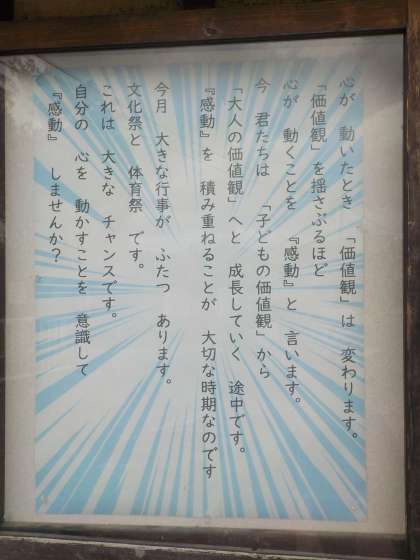 心が 動いたとき 「価値観」は 変わります。
「価値観」を揺さぶるほど
心が 動くことを 『感動』と 言います。
今 君たちは 「子どもの価値観」から
「大人の価値観」へと 成長していく 途中です。
『感動』を 積み重ねることが 大切な時期なのです
今月 大きな行事が ふたつ あります。
文化祭と 体育祭 です。
これは 大きな チャンスです。
自分の 心を 動かすことを 意識して
『感動』 しませんか？